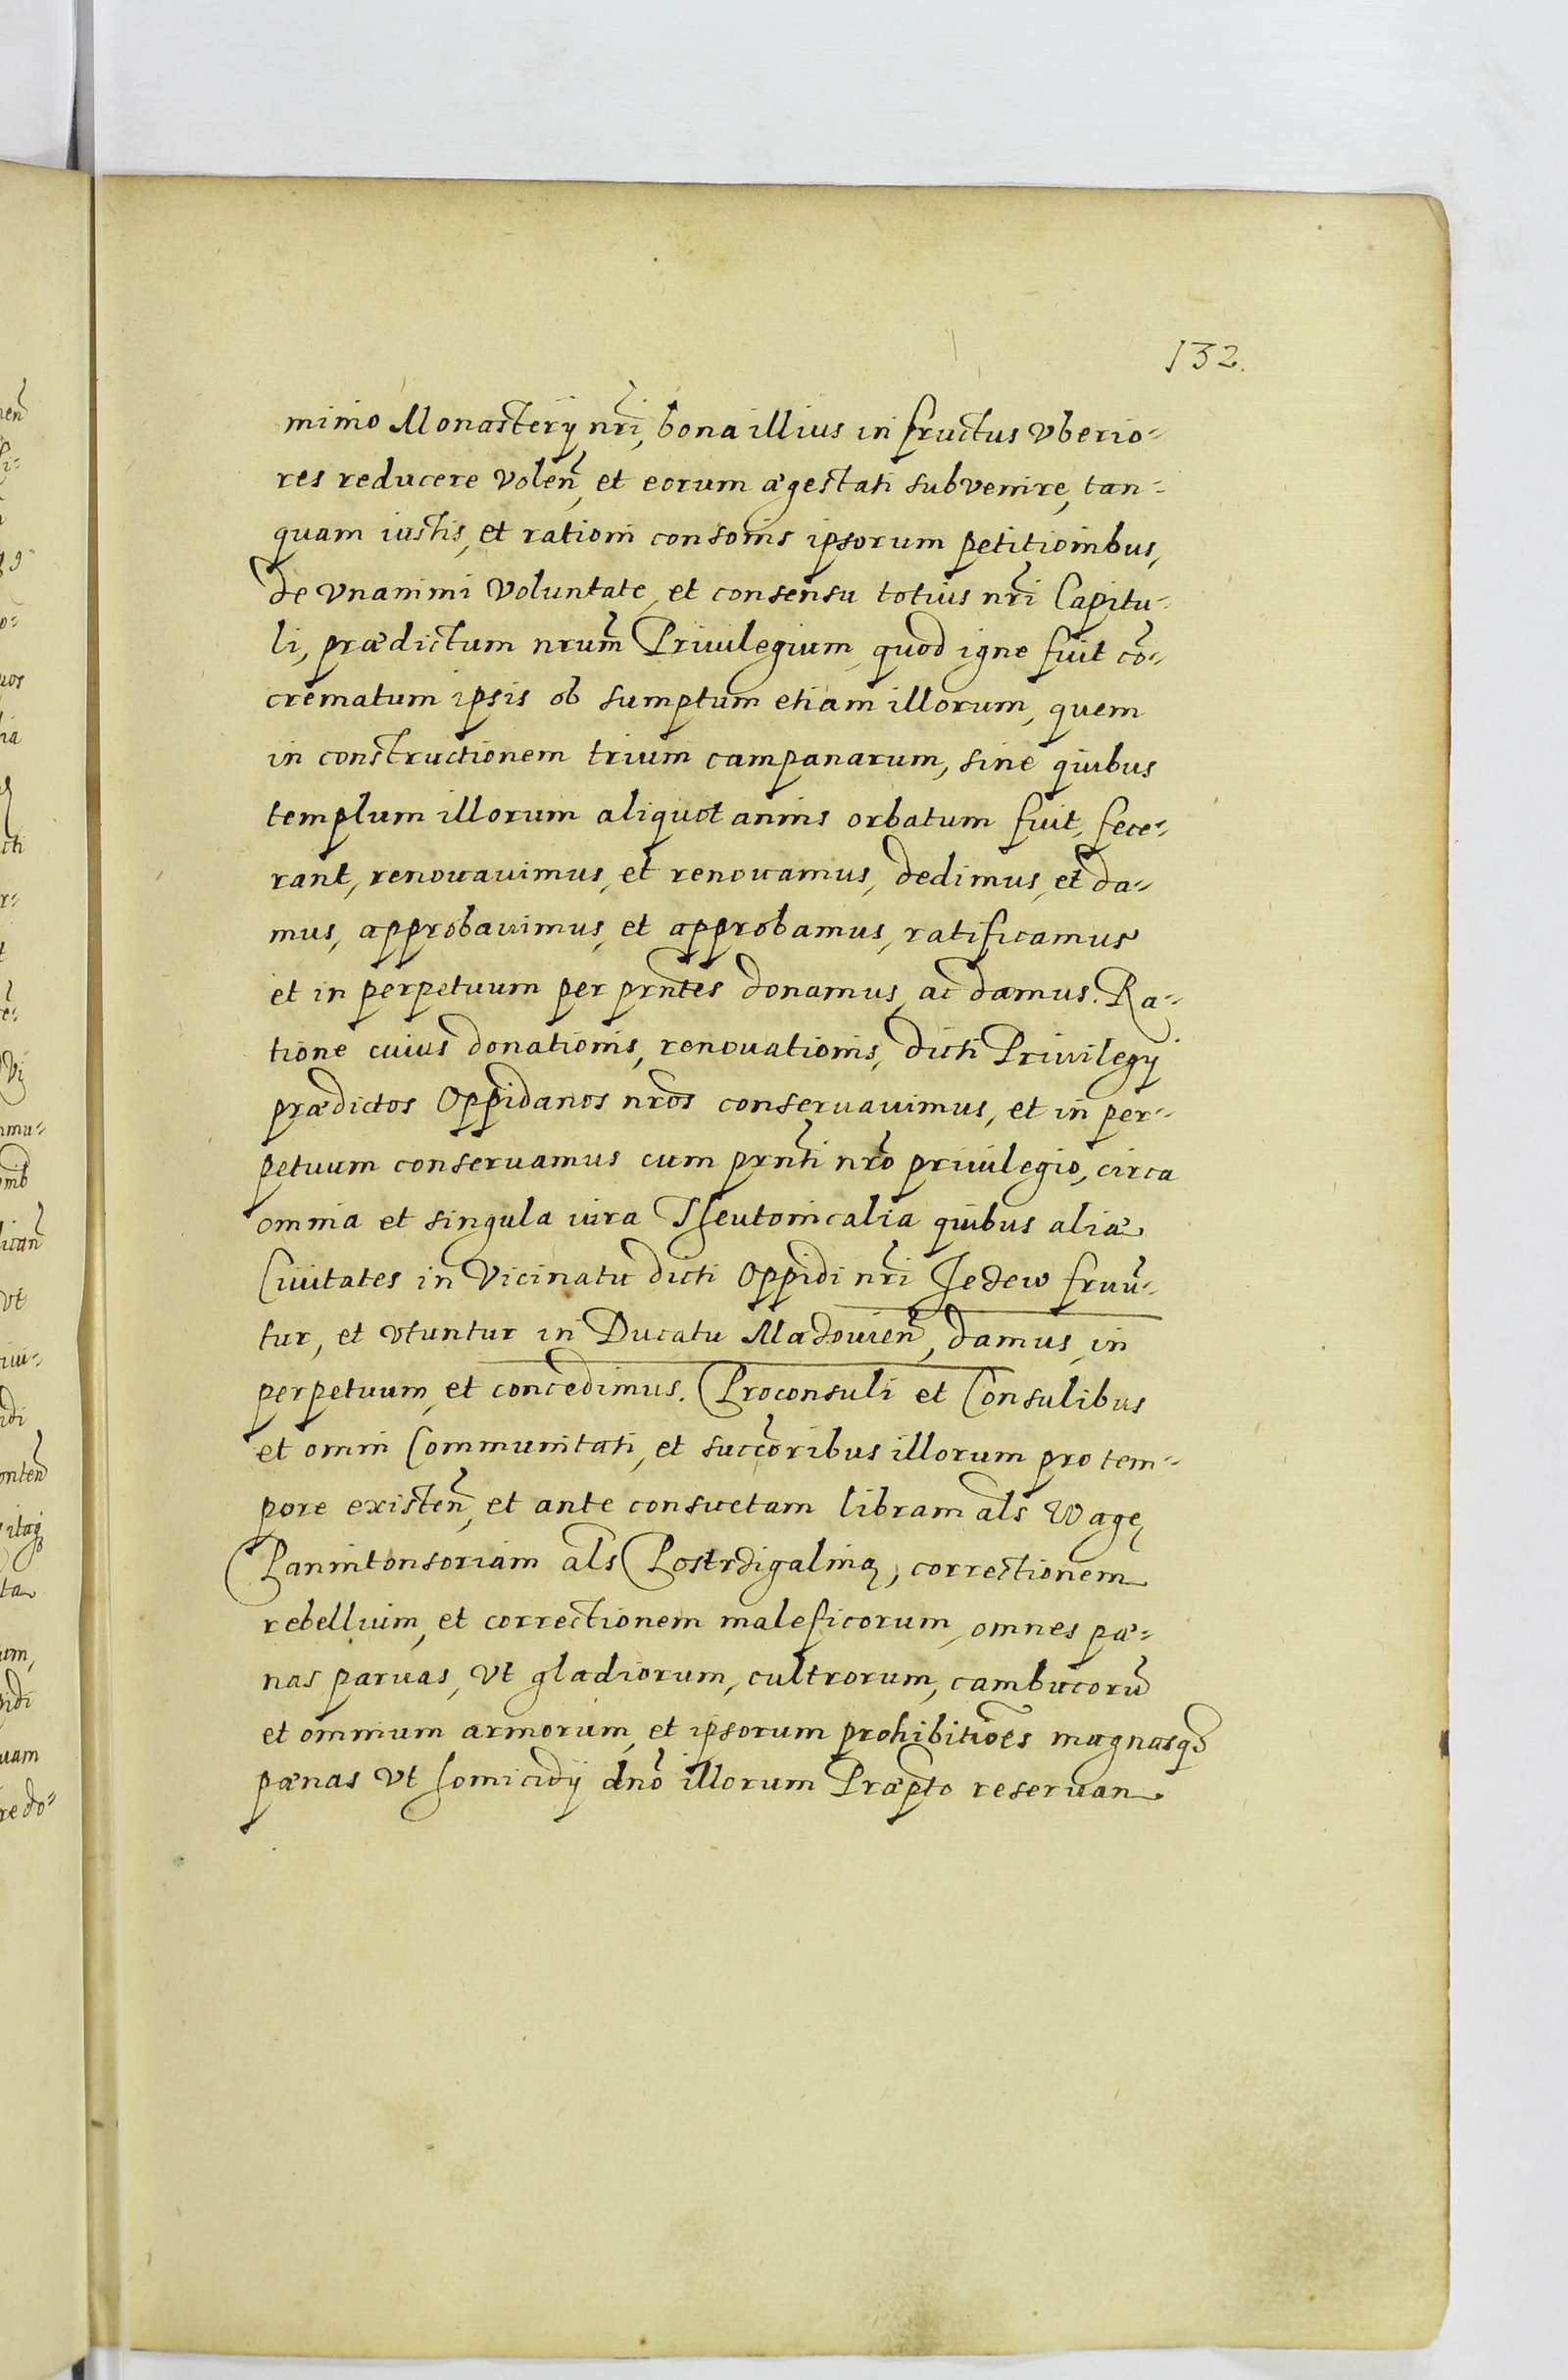 132.
minio Monasterij nr̃i, bona illius in fructus vberio-
res reducere volen̄, et eorum ægestati subvenire, tan-
quam iustis, et rationi consonis ipsorum petitionibus,
de vnanimi voluntate, et consensu totius nr̃i Capitu-
li, prædictum nrum̃ Priuilegium, quod igne fuit cō-
crematum ipsis ob sumptum etiam illorum, quem
in constructionem trium campanarum, sine quibus
templum illorum aliquot annis orbatum fuit, fece-
rant, renouauimus, et renouamus, dedimus, et da-
mus, approbauimus, et approbamus, ratificamus
et in perpetuum per prñtes donamus, ac damus. Ra-
tione cuius donationis, renouationis, dicti Priuilegij
prædictos Oppidanos nrõs conseruauimus, et in per-
petuum conseruamus cum prñti nrõ priuilegio, circa
omnia et singula iura Theutonicalia quibus aliæ
Ciuitates in Vicinatu dicti Oppidi nr̃i Jedew fruū-
tur, et vtuntur in Ducatu Madouien̄, damus, in
perpetuum, et concedimus. Proconsuli et Consulibus
et omni Communitati, et succõribus illorum pro tem-
pore existen̄, et ante consuetam libram als Wagę
Pannitonsoriam als Postrdigalnią, correctionem
rebellium, et correctionem maleficorum, omnes pæ-
nas paruas, vt gladiorum, cultrorum, cambucorū
et omnium armorum, et ipsorum prohibitiões magnasq3
pænas vt homicidij dnõ illorum Præpto reseruan